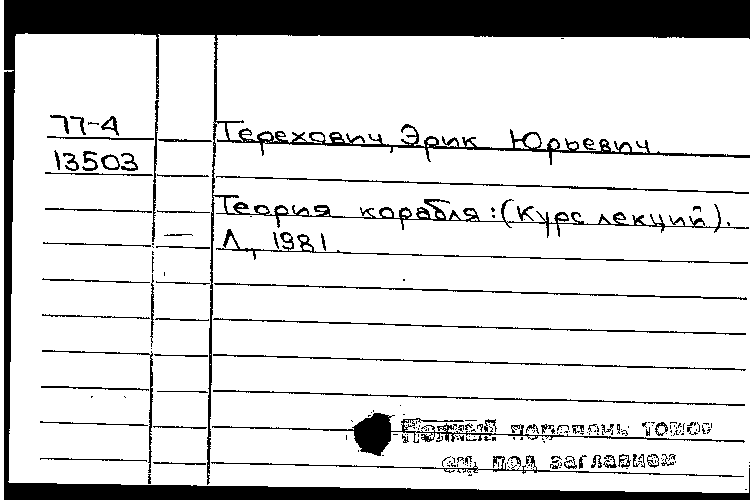 77-4
13503
Терехович, Эрик Юрьевич.
Теория корабля: (Курс лекций).
Л., 1981.
Полный перечень томов
см. под заглавием